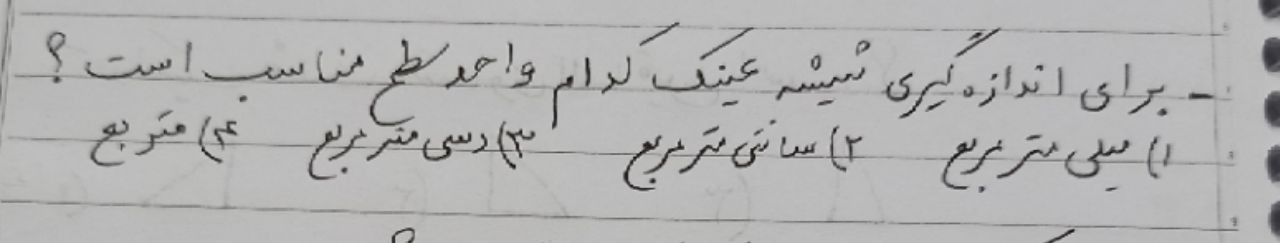 - برای اندازه گیری شیشه عینک کدام واحد سطح مناسب است؟
۱) میلی متر مربع ۲) سانتی متر مربع ۳) دسی متر مربع ۴) متر مربع